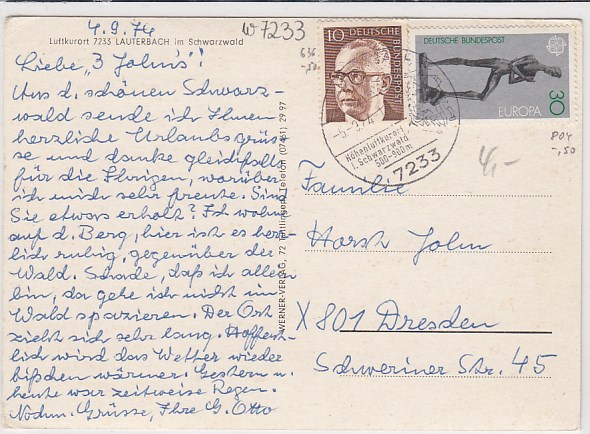 4.9.74
W7233
Luftkurort 7233 LAUTERBACH im Schwarzwald
Liebe „3 Johns"!
Aus d. schönen Schwarz-
wald sende ich Ihnen
herzliche Urlaubsgrüs-
se und danke gleichfalls
für die Ihrigen, worüber
ich mich sehr freute. Sind
Sie etwas erholt? Ich wohne
auf d. Berg, hier ist es herr-
lich ruhig, gegenüber der
Wald. Schade, daß ich allein
bin, da gehe ich nicht im
Wald spazieren. Der Ort
zieht sich sehr lang. Hoffent-
lich wird das Wetter wieder
bißchen wärmer. Gestern u.
heute war zeitweise Regen.
Nochm. Grüsse, Ihre G. Otto
WERNER-VERLAG, 72 Tuttlingen, Telefon (07461) 29 97
10
DEUTSCHE
BUNDESPOST
636
-,50
DEUTSCHE BUNDESPOST
CEPT
EUROPA
30
804
-,50
4,-
-5.-9.74
Höhenluftkurort
i. Schwarzwald
500-900m
7233
Familie
Horst John
X801 Dresden
Schweriner Str. 45